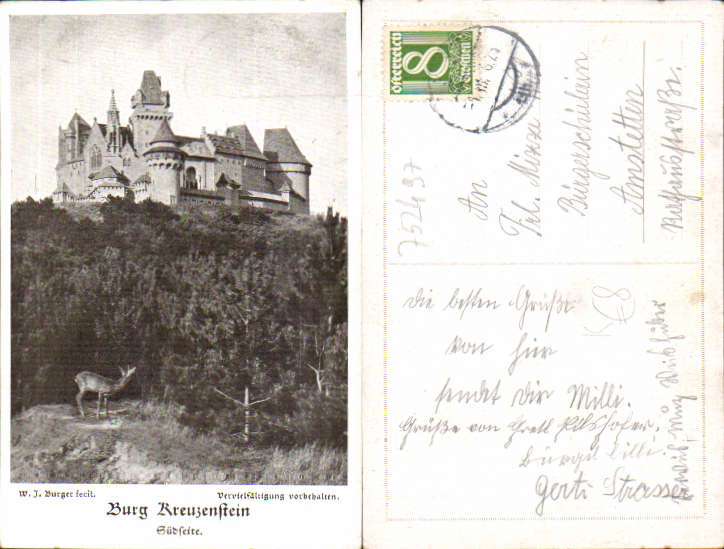 W. J. Burger fecit. Vervielfältigung vorbehalten.
Burg Kreuzenstein
Südseite.
Österreich 8 Groschen
752497
An
Frl. Mizzi
Bürgerschülerin
Amstetten
Rathausstraße
Die besten Grüße
von hier
sendet Dir Milli.
Grüße von Gretl
Burgel Lilli.
Gerti Strasser